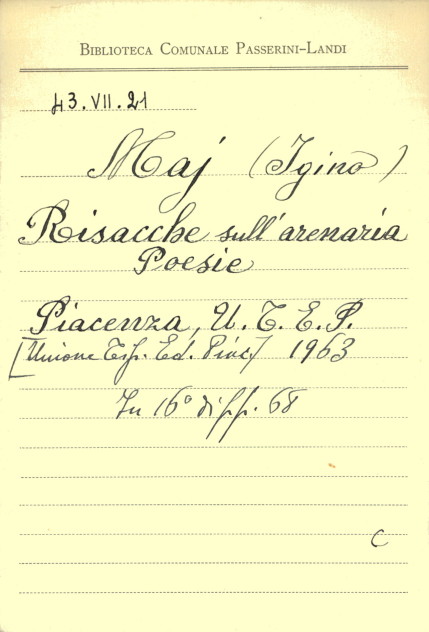 BIBLIOTECA COMUNALE PASSERINI-LANDI
43.VII.21
Maj (Igino)
Risacche sull'arenaria
Poesie
Piacenza, U.T.E.P.
[Unione Tip. Ed. Piac.] 1963
In 16° di pp. 68
C